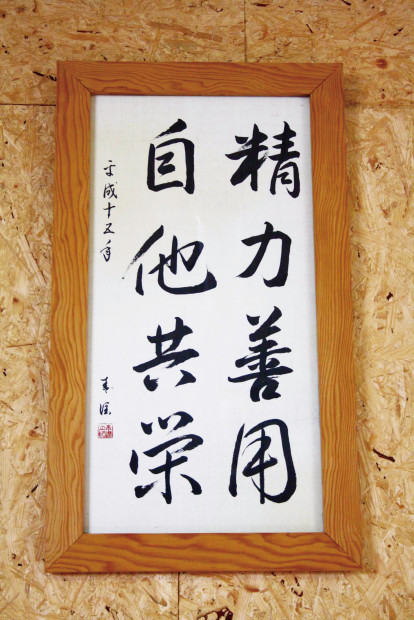 精力善用
自他共栄
平成十五年